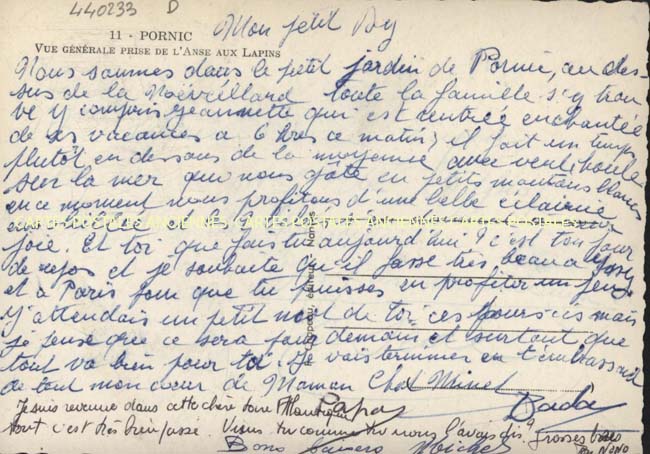 440233 D
11 - PORNIC
VUE GÉNÉRALE PRISE DE L'ANSE AUX LAPINS
Mon petit
Nous sommes dans le petit jardin de Pornic, au des-
sus de la Noëveillard toute la famille s'y trou
ve y compris Jeannette qui est rentrée enchantée
de ses vacances à 6 hres ce matin, il fait un temps
plutôt en dessous de la moyenne avec vent houle
sur la mer que nous gâte en petits moutons blancs
en ce moment nous profitons d'une belle éclaircie
CARTES POSTALES ANCIENNES CARTES POSTALES ANCIENNES CARTES POSTALES
joie. Et toi que fais tu aujourd'hui ? c'est ton jour
de repos et je souhaite qu'il fasse très beau à
et à Paris pour que tu puisses en profiter un peu.
J'attendais un petit mot de toi ces jours-ci mais
je pense que ce sera pour demain et surtout que
tout va bien pour toi. Je vais terminer en t'embrassant
de tout mon coeur de Maman Chat Minet
Papa Dada
Je suis revenue dans cette chère
tout c'est très bien passé. Viens tu comme tu nous l'avais dis ? grosses bises
Bons baisers Michel
de NONO
éditeur